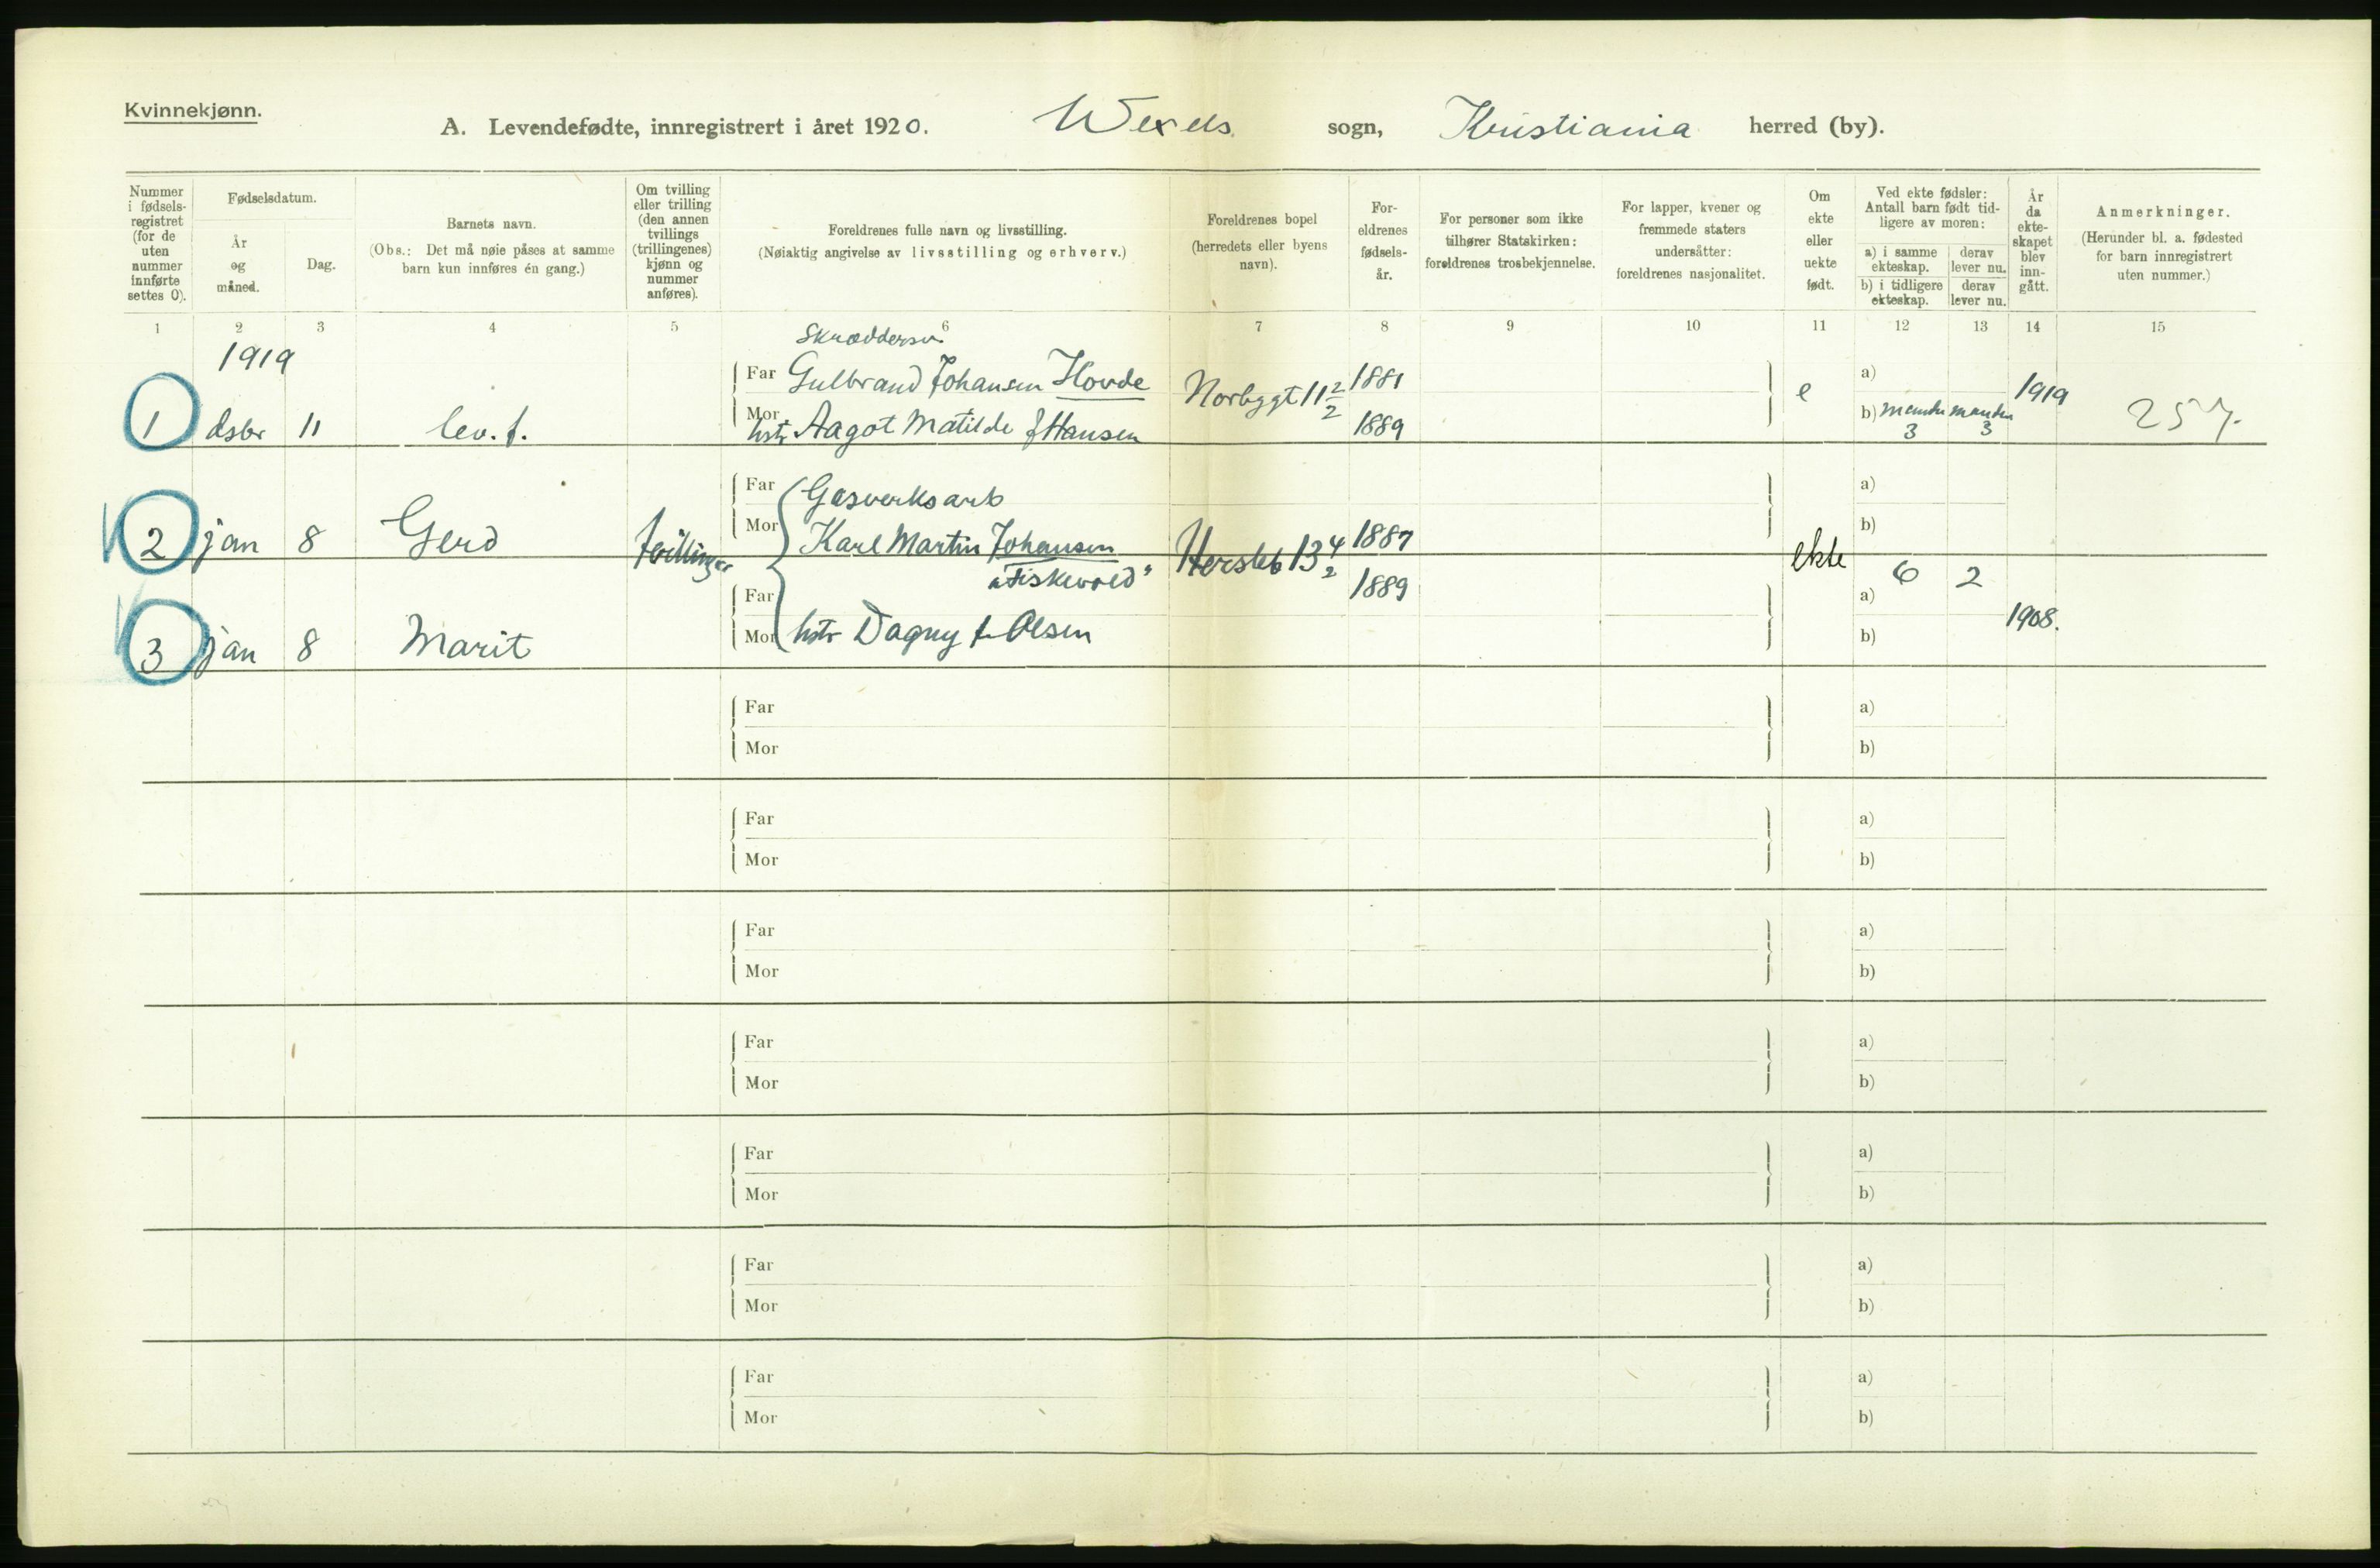 Kvinnekjønn.
A. Levendefødte, innregistrert i året 1920. Wexels sogn, Kristiania herred (by).
Nummer i fødsels-registret (for de uten nummer innførte settes 0).
Fødselsdatum.
År og måned.
Dag.
Barnets navn.
(Obs.: Det må nøie påses at samme barn kun innføres én gang.)
Om tvilling eller trilling (den annen tvillings (trillingenes) kjønn og nummer anføres).
Foreldrenes fulle navn og livsstilling.
(Nøiaktig angivelse av livsstilling og erhverv.)
Foreldrenes bopel (herredets eller byens navn).
For-eldrenes fødsels-år.
For personer som ikke tilhører Statskirken: foreldrenes trosbekjennelse.
For lapper, kvener og fremmede staters undersåtter: foreldrenes nasjonalitet.
Om ekte eller uekte født.
Ved ekte fødsler: Antall barn født tid-ligere av moren:
a) i samme ekteskap.
derav lever nu.
b) i tidligere ekteskap.
derav lever nu.
År da ekte-skapet blev inn-gått.
Anmerkninger.
(Herunder bl. a. fødested for barn innregistrert uten nummer.)
1 2 3 4 5 6 7 8 9 10 11 12 13 14 15
1919
Skræddersv.
Far Gulbrand Johansen Hovde Norbygt 11 2/2 1881 e a) 1919
1 dsbr 11 lev. f. Mor hstr Aagot Matilde f Hansen 1889 b) 3 3 257.
Far Gasverksarb a)
2 jan 8 Gerd tvillinger Mor Karl Martin Johansen Hersleb 13 4/2 1887 ekte b)
"Fiskevold" 1889 6 2
Far a)
3 jan 8 Marit Mor hstr Dagny f. Olsen b) 1908.
Far a)
Mor b)
Far a)
Mor b)
Far a)
Mor b)
Far a)
Mor b)
Far a)
Mor b)
Far a)
Mor b)
Far a)
Mor b)